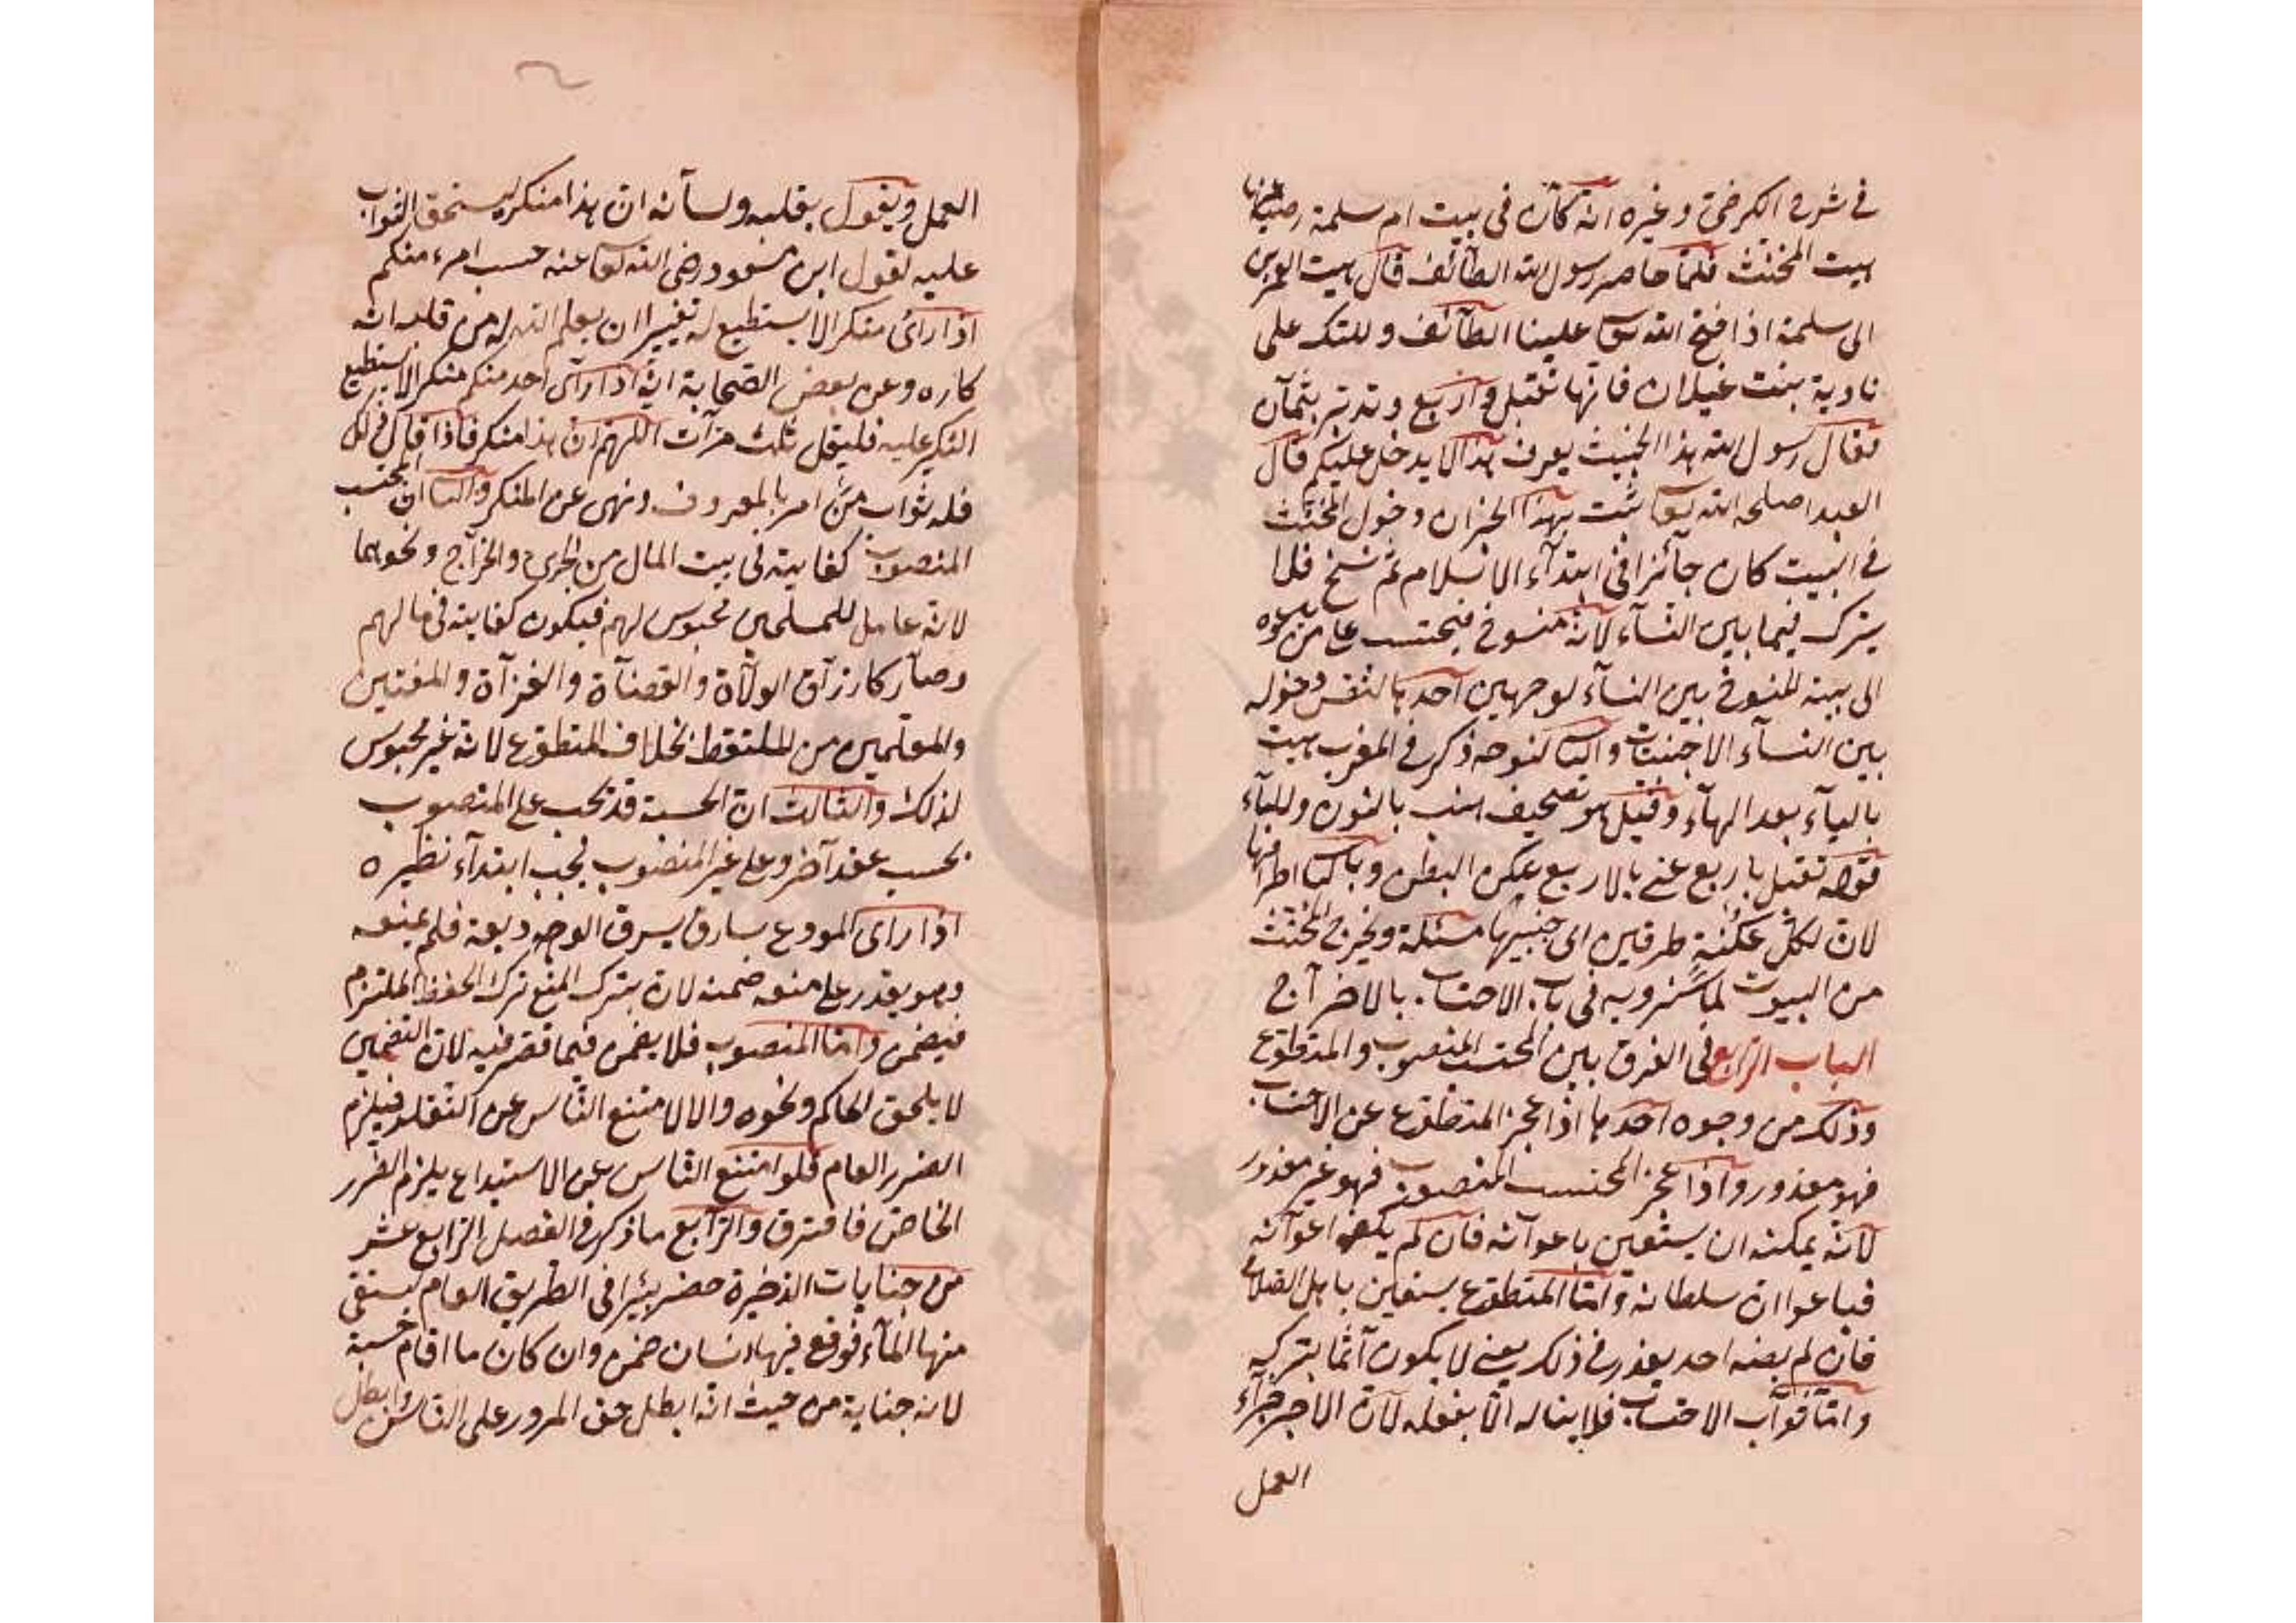 في شرح الكرخي وغيره انه كان في بيت ام سلمة رضي عنها
هيت المخنث فلما حاصر رسول الله الطائف قال هيت لعمر بن
ابى سلمة اذا فتح الله تعا علينا الطائف وللتك على
نادية بنت غيلان فانها تقبل واربع وتدبر بثمان
فقال رسول الله هذا الخبيث يعرف هذا لا يدخل عليكم قال
العبد اصلحه الله تعا ثبت بهذا الخبران دخول المخنث
في البيت كان جائزا في ابتداء الاسلام ثم نسخ فلا
يترك فيما بين النساء لانه منسوخ فيحتسب على من يدعوه
الى بيته المنسوخ بين النساء لوجهين احدها لنفس دخوله
بين النساء الاجنبيات والثا لنوحه ذكر في المغرب هيت
بالياء بعد الهاء وقيل هو تصحيف هنب بالنون والباء
قوله تقبل باربع عنى بالاربع عكن البطن وبالثما اطرافها
لان لكل عكنة طرفين الى جنبيها مسئلة ويخرج المخنث
من البيوت لما سنرويه في باب الاحتساب بالاخراج
الباب الرابع في الفرق بين المحتسب المنصوب والمتطوع
وذلك من وجوه احدها اذا عجز المتطوع عن الاحتساب
فهو معذور واذا عجز المحتسب المنصوب فهو غير معذور
لانه يمكنه ان يستعين باعوانه فان لم يكفه اعوانه
فباعوان سلطانه واما المتطوع يستعين باهل الصلاح
فان لم يعنه احد يعذر في ذلك يعنى لا يكون آثما بتركه
واما ثواب الاحتساب فلا يناله الا بفعله لان الاجر جزاء
العمل
العمل ويقول بقلبه ولسانه ان هذا منكر ليستحق الثواب
عليه لقول ابن مسعود رضى الله تعا عنه حسب امرء منكم
اذا راى منكرا لا يستطيع له تغييرا ان يعلم الله له من قلبه انه
كاره وعن بعض الصحابة انه اذا راى احد منكم منكرا لا يستطيع
النكير عليه فليقل ثلث مرات اللهم ان هذا منكر فاذا قال ذلك
فله ثواب من امر بالمعروف ونهى عن المنكر والثا ان المحتسب
المنصوب كفايته في بيت المال من الجزية والخراج ونحوهما
لانه عامل للمسلمين محبوس لهم فيكون كفايته في مالهم
وصار كارزاق الولاة والقضاة والغزاة والمفتين
والمعلمين من الملتقط بخلاف المتطوع لانه غير محبوس
لذلك والثالث ان الحسبة قد تجب على المنصوب
بحسب عقد آخر وعلى غير المنصوب تجب ابتداء نظيره
اذا راى المودع سارق يسرق الوديعة فلم يمنعه
وهو يقدر على منعه ضمنه لان بترك المنع ترك الحفظ الملتزم
فيضمن واما المنصوب فلا يضمن فيما قصر فيه لان التضمين
لا يلحق الحاكم ونحوه والا لامتنع الناس عن التقلد فيلزم
الضرر العام فلو امتنع الناس عن الاستيداع يلزم الضرر
الخاص فافترق والرابع ما ذكر في الفصل الرابع عشر
من جنايات الذخيرة حضر بئيرا في الطريق العام ليستقى
منها الماء فوقع فيها انسان ضمن وان كان ما اقام حسبة
لانه جناية من حيث انه ابطل حق المرور على الناس وابطل